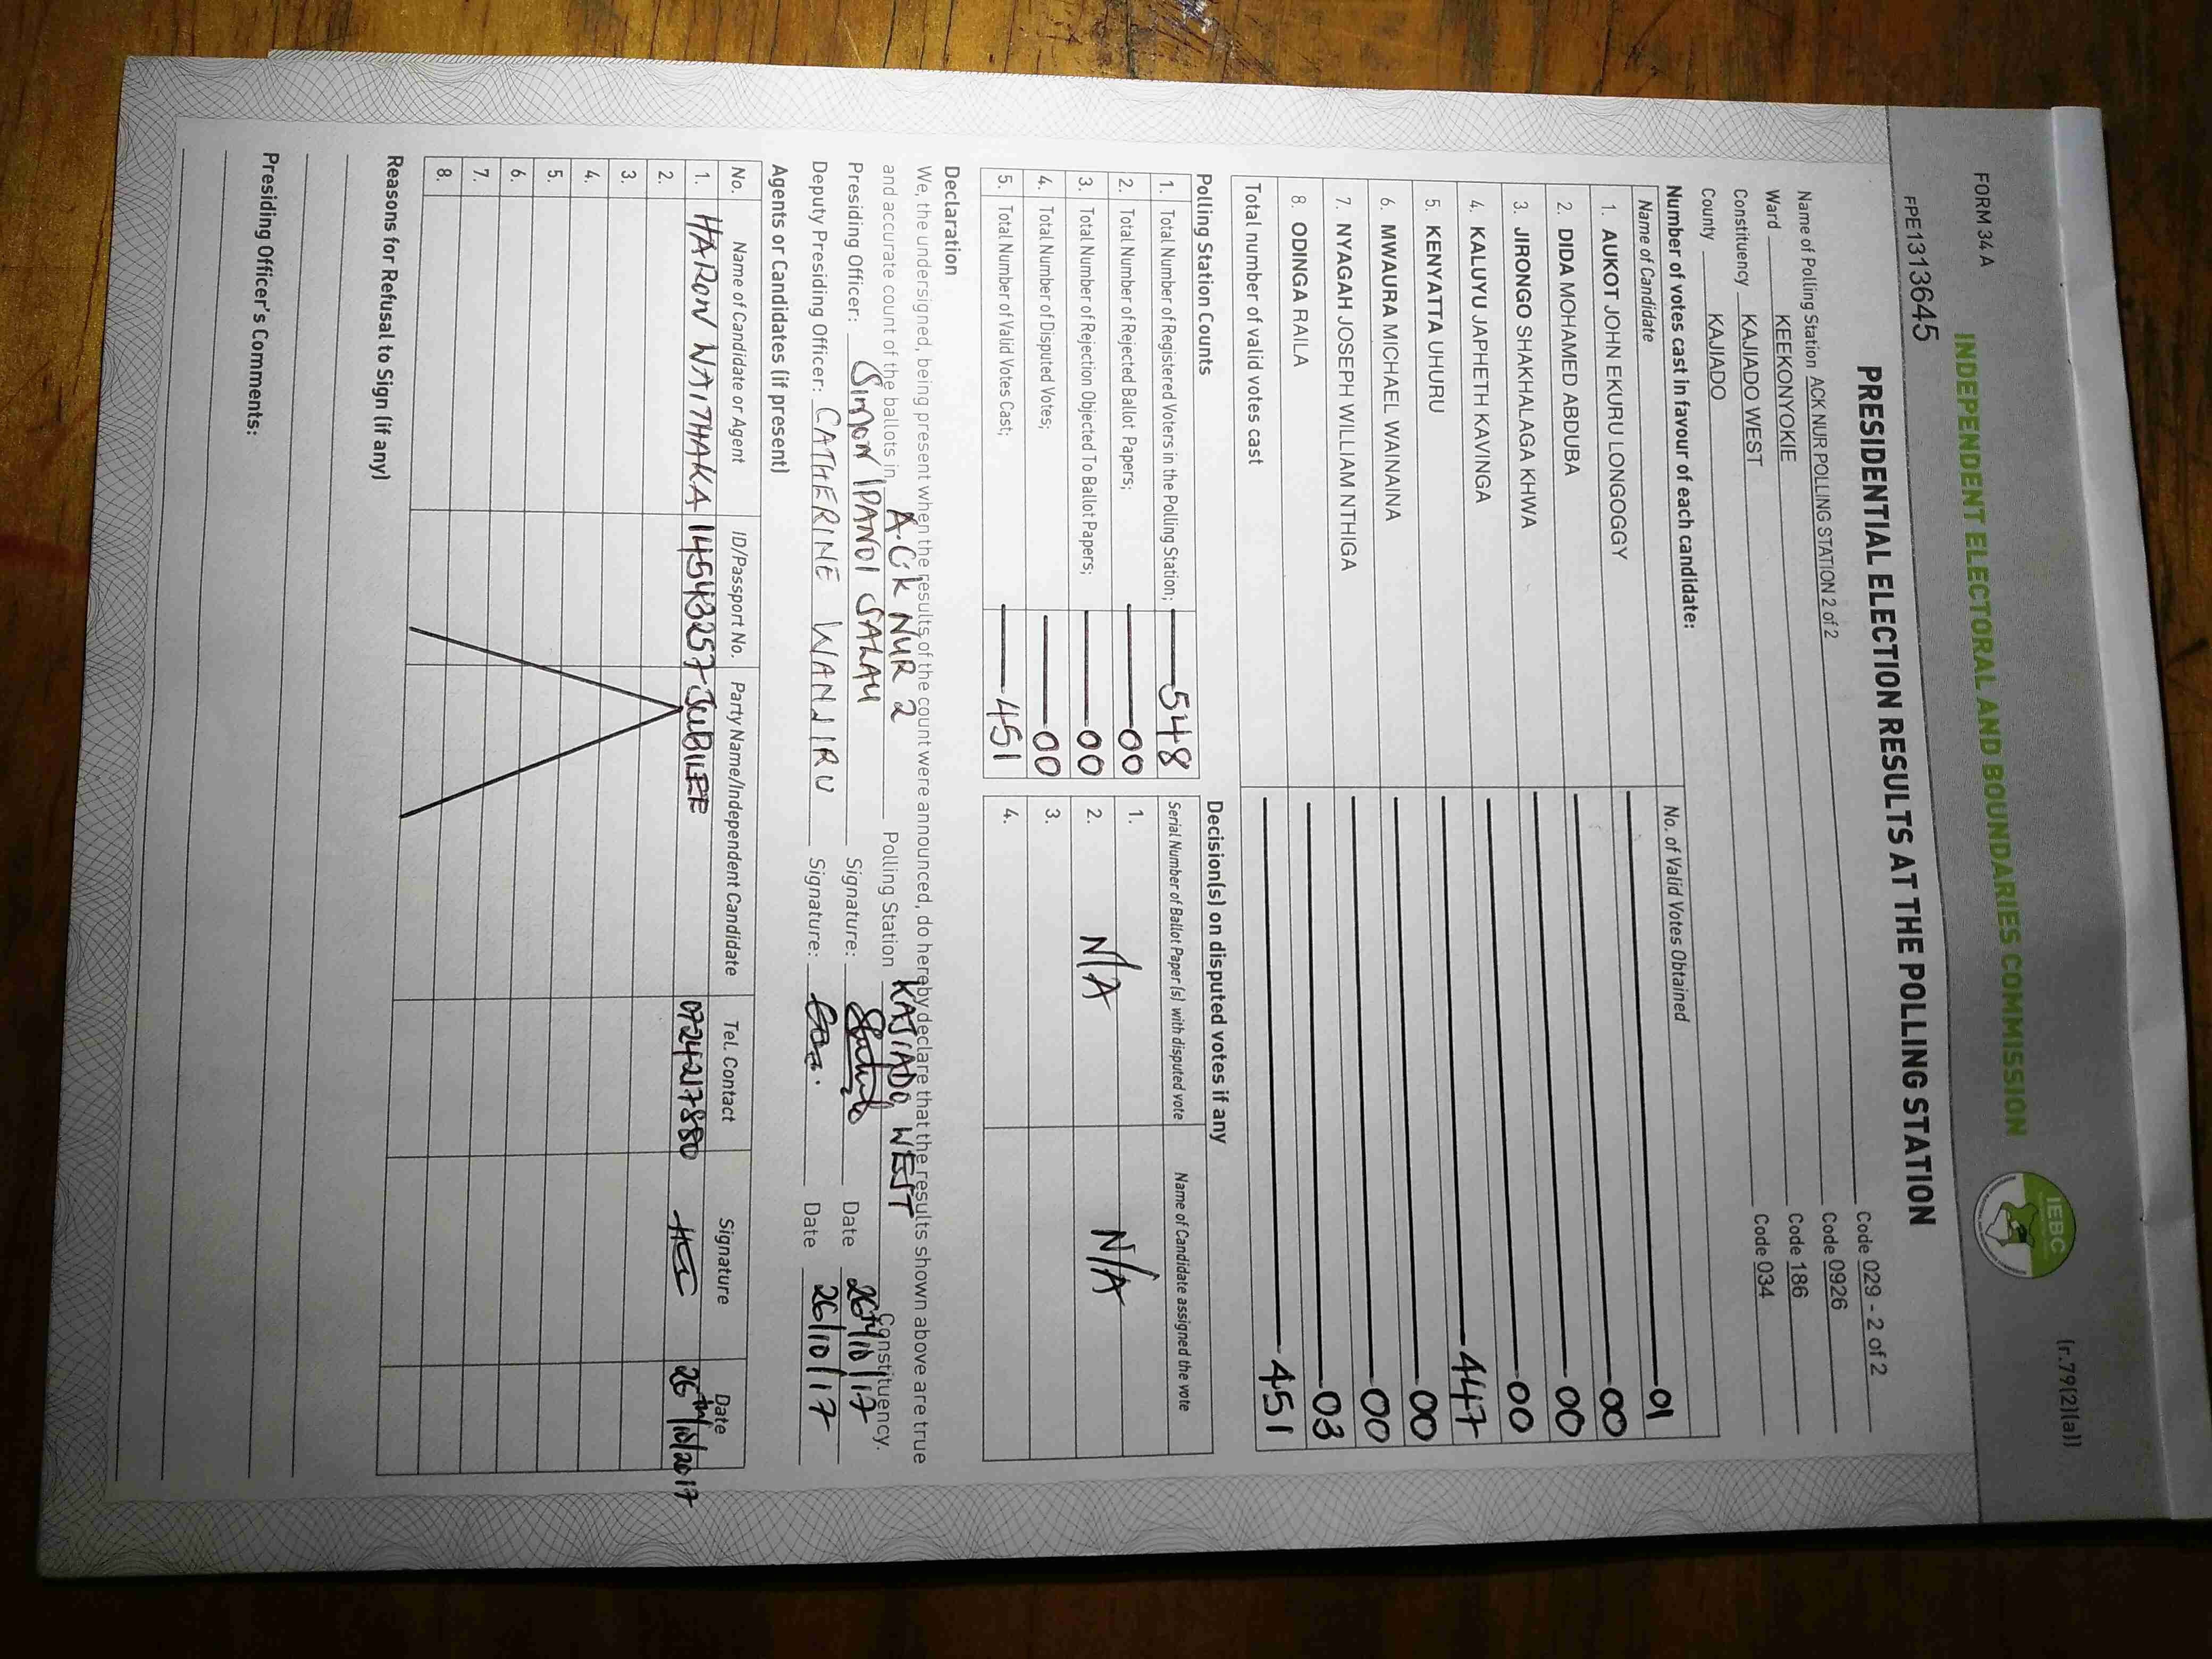 FORM 34 A
(r.79(2)(a))
INDEPENDENT ELECTORAL AND BOUNDARIES COMMISSION
IEBC
FPE1313645
PRESIDENTIAL ELECTION RESULTS AT THE POLLING STATION
Name of Polling Station ACK NUR POLLING STATION 2 of 2 Code 029 - 2 of 2
Ward KEEKONYOKIE Code 0926
Constituency KAJIADO WEST Code 186
County KAJIADO Code 034
Number of votes cast in favour of each candidate:
Name of Candidate No. of Valid Votes Obtained
1. AUKOT JOHN EKURU LONGOGGY 01
2. DIDA MOHAMED ABDUBA 00
3. JIRONGO SHAKHALAGA KHWA 00
4. KALUYU JAPHETH KAVINGA 00
5. KENYATTA UHURU 447
6. MWAURA MICHAEL WAINAINA 00
7. NYAGAH JOSEPH WILLIAM NTHIGA 00
8. ODINGA RAILA 03
Total number of valid votes cast 451
Polling Station Counts
1. Total Number of Registered Voters in the Polling Station; 548
2. Total Number of Rejected Ballot Papers; 00
3. Total Number of Rejection Objected To Ballot Papers; 00
4. Total Number of Disputed Votes; 00
5. Total Number of Valid Votes Cast; 451
Decision(s) on disputed votes if any
Serial Number of Ballot Paper(s) with disputed vote Name of Candidate assigned the vote
1.
2. N/A N/A
3.
4.
Declaration
We, the undersigned, being present when the results of the count were announced, do hereby declare that the results shown above are true
and accurate count of the ballots in A.C.K NUR 2 Polling Station KAJIADO WEST Constituency.
Presiding Officer: SIMON IPANOI SALAU Signature: Date 26/10/17
Deputy Presiding Officer: CATHERINE WANJIRU Signature: Date 26/10/17
Agents or Candidates (if present)
No. Name of Candidate or Agent ID/Passport No. Party Name/Independent Candidate Tel. Contact Signature Date
1. HARON WAITHAKA 14543257 JUBILEE 0724217880 26th/10/2017
2.
3.
4.
5.
6.
7.
8.
Reasons for Refusal to Sign (if any)
Presiding Officer's Comments: